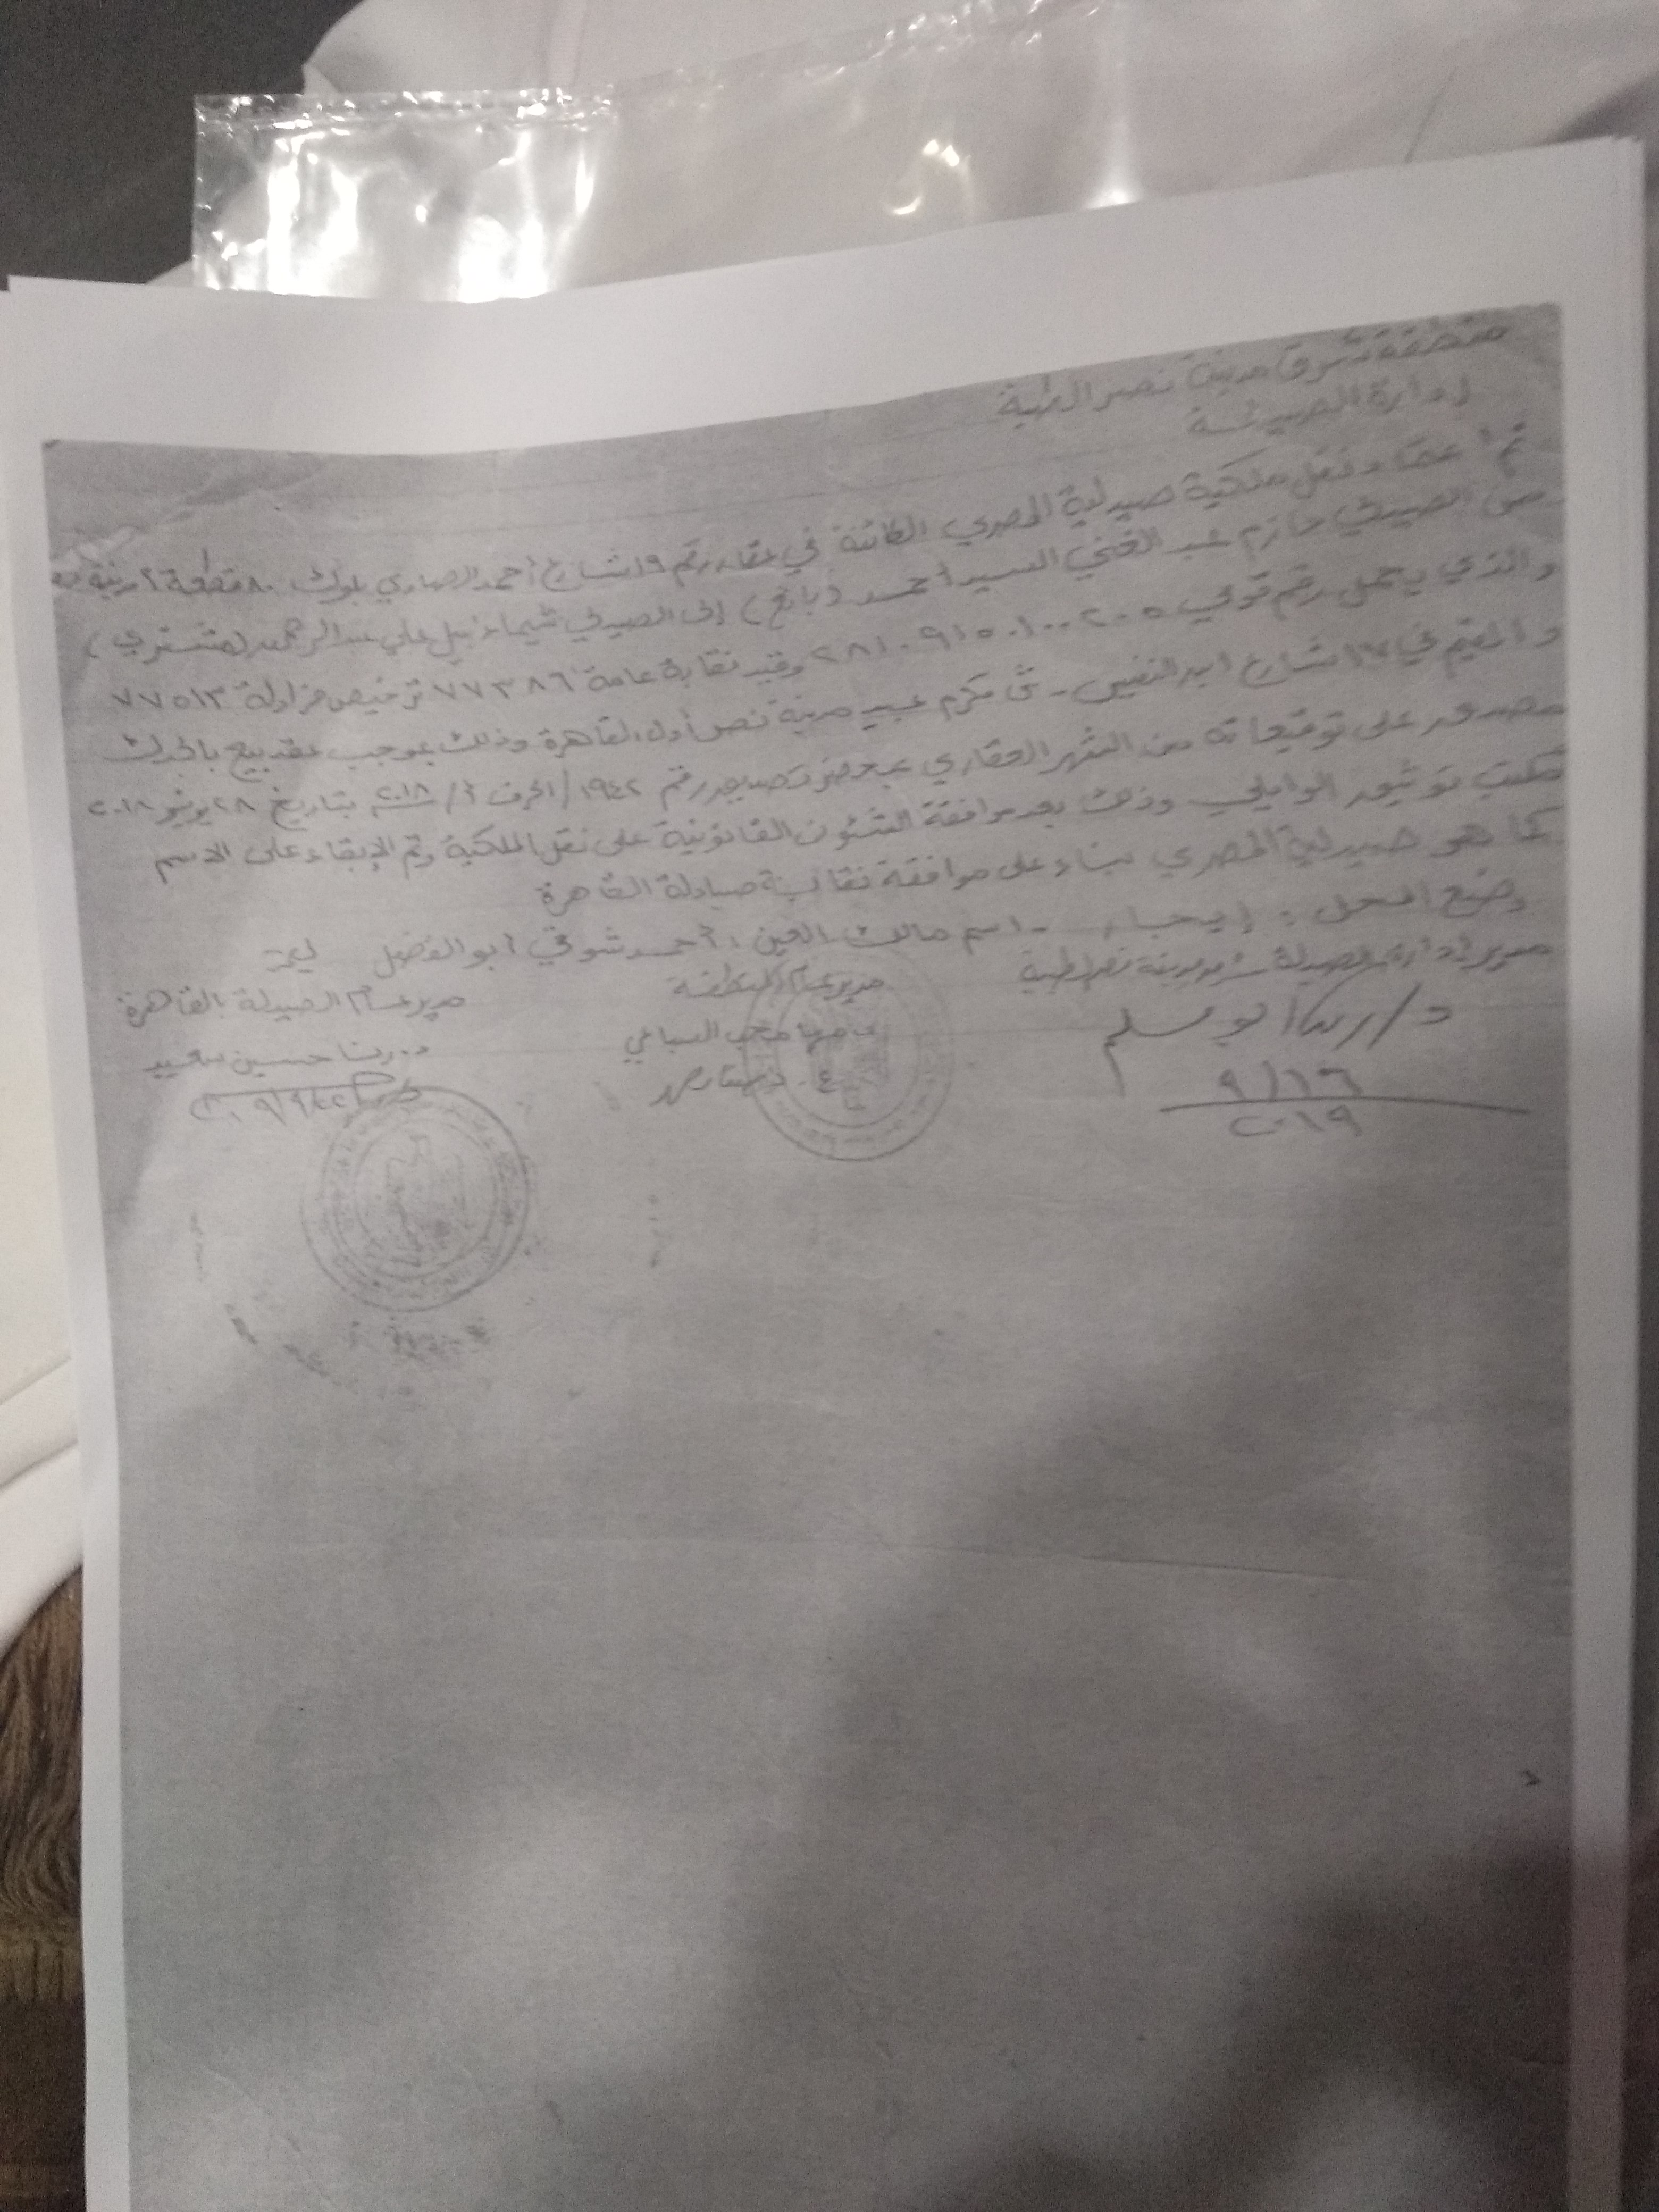 منطقة شرق مدينة نصر الطبية
إدارة الصيدلة
تم اعتماد نقل ملكية صيدلية المصري الكائنة في عقار رقم ١٩ شارع أحمد الصاوي بلوك ٨٠ قطعة ٢ مدينة
من الصيدلي حازم عبد الغني السيد أحمد (بائع) إلى الصيدلي شيماء نبيل علي عبد الرحمن (مشتري)
والذي يحمل رقم قومي ٢٨١٠٩١٥٠١٠٠٢٠٥ وقيد نقابة عامة ٧٧٣٨٦ ترخيص مزاولة ٧٧٥١٣
والمقيم في ١٧ شارع ابن النفيس - ش مكرم عبيد مدينة نصر أول القاهرة وذلك بموجب عقد بيع بالجدك
مصدق على توقيعاته من الشهر العقاري بمحضر تصديق رقم ١٩٤٢/ الحرف أ/ ٢٠١٨ بتاريخ ٢٨ يونيو ٢٠١٨
مكتب توثيق الوايلي وذلك بعد موافقة الشئون القانونية على نقل الملكية وتم الإبقاء على الاسم
كما هو صيدلية المصري بناء على موافقة نقابة صيادلة القاهرة
وضع المحل : إيجار - اسم مالك العين : أحمد شوقي أبو الفضل
مدير إدارة الصيدلة شرق مدينة نصر الطبية
مدير عام المنطقة
مدير عام الصيدلة بالقاهرة
د. مها محب السباعي
د. رشا حسين سعيد
٩/١٦
٢٠١٩